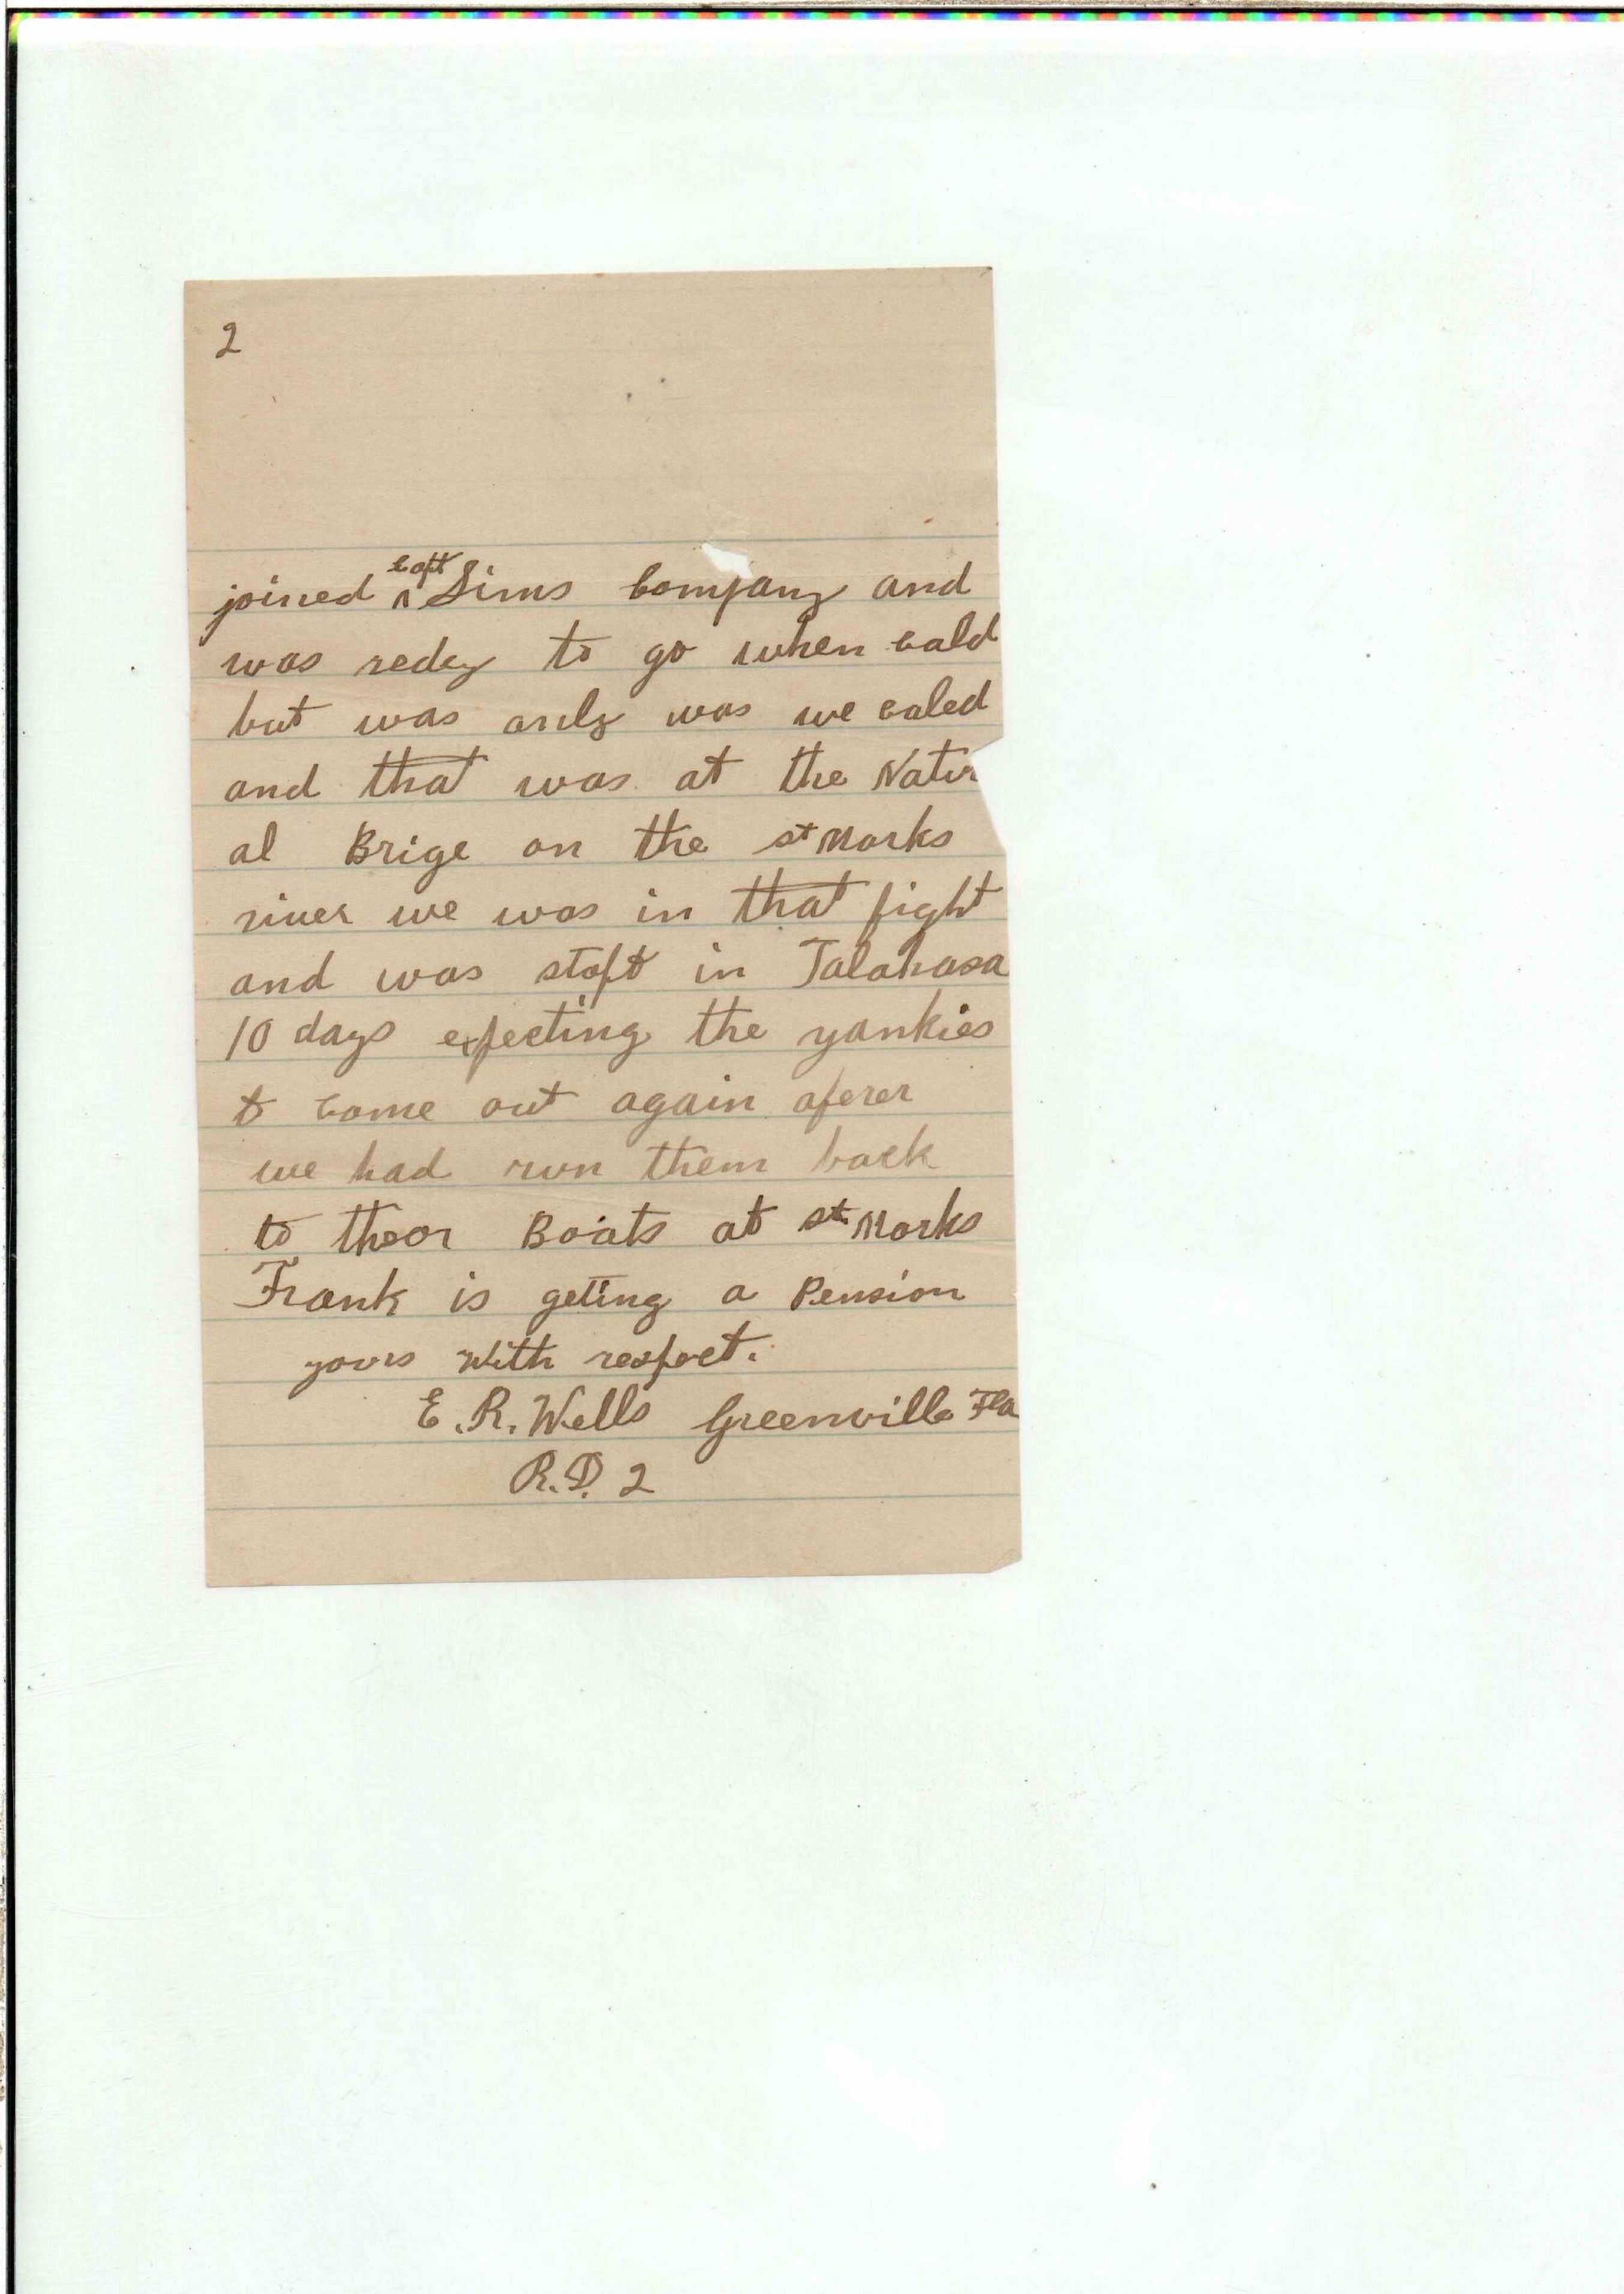 2
joined ^Capt Sims Company and
was redey to go when cald
but was only was we caled
and that was at the Natur
al Brige on the st Marks
river we was in that fight
and was stopt in Talahasa
10 days expecting the yankies
to come out again aferer
we had run them back
to theor Boats at st Marks
Frank is geting a Pension
yours with respect.
E. R. Wells Greenville Fla
R.D. 2